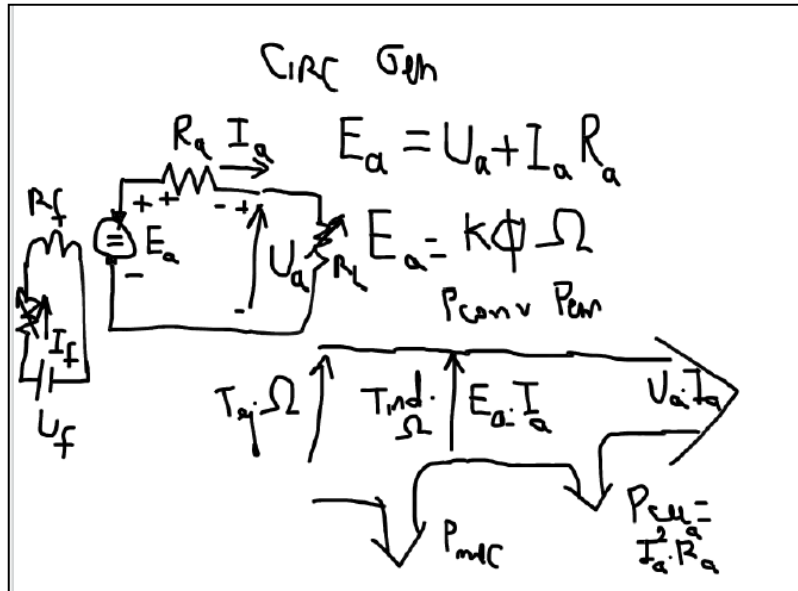 CIRC Gen
Ra Ia
Ea = Ua + Ia Ra
Rf
+ + - +
= Ea
Ua RL
Ea = KϕΩ
- -
If
Uf
Pconv Pem
Tej Ω
Tind. Ω
Ea. Ia
Ua. Ia
Pmec
Pcua =
Ia². Ra